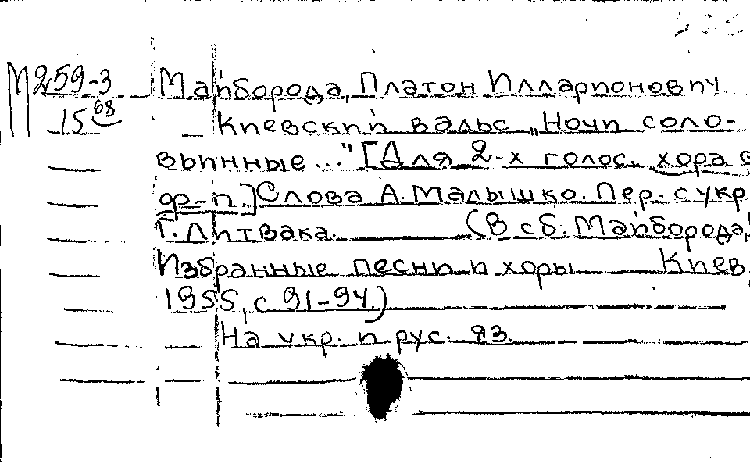 М259-3 Майборода, Платон Илларионович
15 68 Киевский вальс „Ночи соло-
вьиные..." [Для 2-х голос. хора с
ф-п.] Слова А. Малышко. Пер. с укр
Г. Литвака. (В сб. Майборода,
Избранные песни и хоры Киев,
1955, с 91-94.)
На укр. и рус. яз.